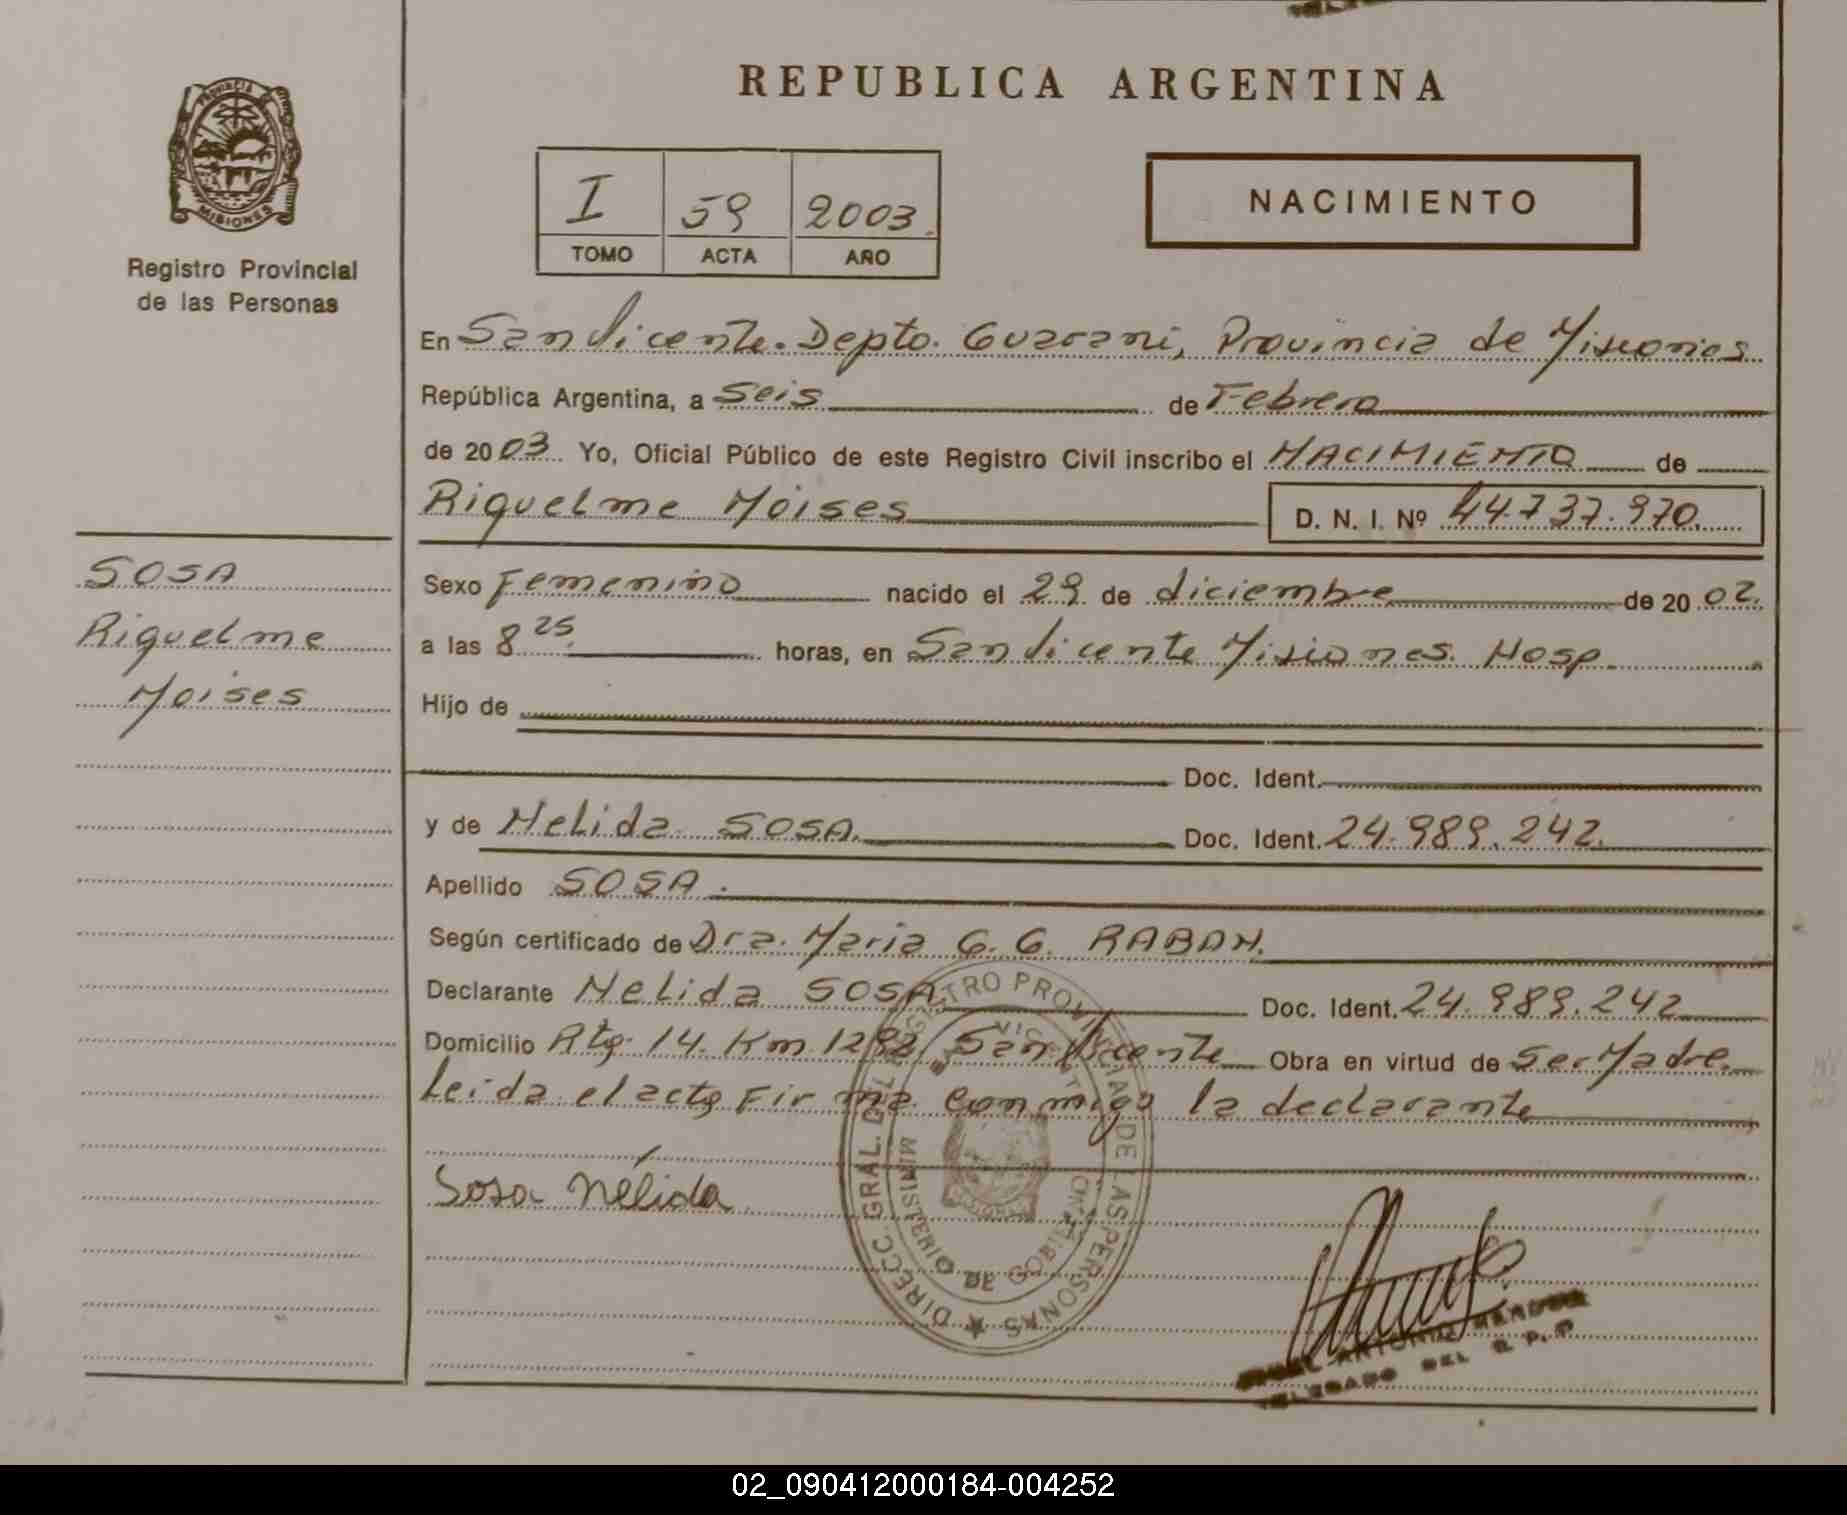 REPUBLICA ARGENTINA
PROVINCIA DE
MISIONES
Registro Provincial
de las Personas
I 59 2003
TOMO ACTA AÑO
NACIMIENTO
En San Vicente. Depto. Guarani, Provincia de Misiones
República Argentina, a Seis de Febrero
de 2003 Yo, Oficial Público de este Registro Civil inscribo el NACIMIENTO de
Riquelme Moises D. N. I. Nº 44.737.970.
SOSA
Riquelme
Moises
Sexo Femenino nacido el 29 de diciembre de 20 02.
a las 8 25 horas, en San Vicente Misiones. Hosp.
Hijo de
Doc. Ident.
y de Nelida SOSA. Doc. Ident. 24.989.242.
Apellido SOSA.
Según certificado de Dra. Maria G. G. RABAN.
Declarante Nelida SOSA Doc. Ident. 24.989.242
Domicilio Rta. 14. Km 1282 San Vicente Obra en virtud de Ser Madre.
Leida el acta Firma conmigo la declarante
Sosa Nélida
DIRECC. GRAL. DEL REGISTRO PROVINCIAL DE LAS PERSONAS
MINISTERIO DE GOBIERNO
ANTONIO
DELEGADO DEL R. P. P.
02_090412000184-004252